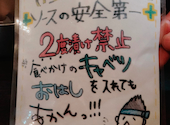 ソースの安全第一
2度漬け禁止
食べかけのキャベツ
おはしを入れても
あかんっ!!!